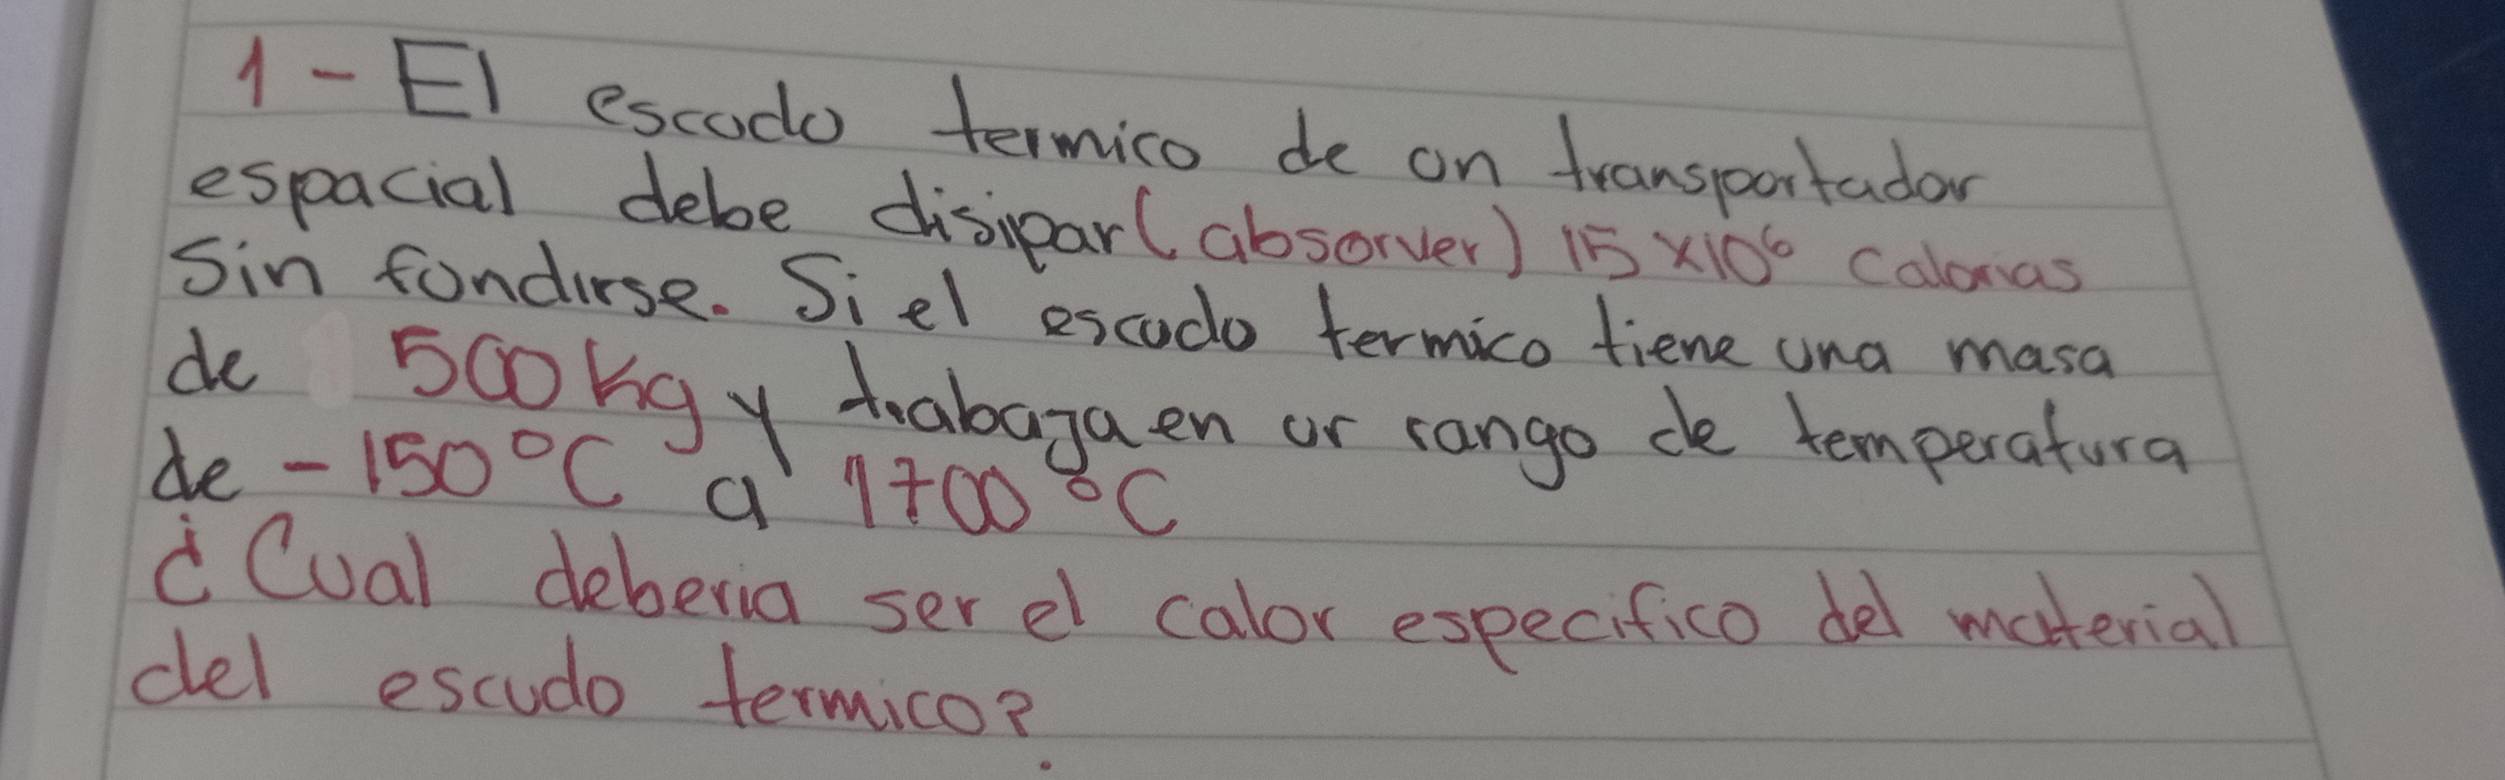 1 - El escudo termico de un transportador
espacial debe disipar (absorver) 15 x10⁶ calorias
Sin fundirse. Si el escudo termico tiene una masa
de 500 Kg y trabaja en ur rango de temperatura
de - 150 °C a 1700 °C
¿Cual deberia ser el calor especifico del material
del escudo termico?